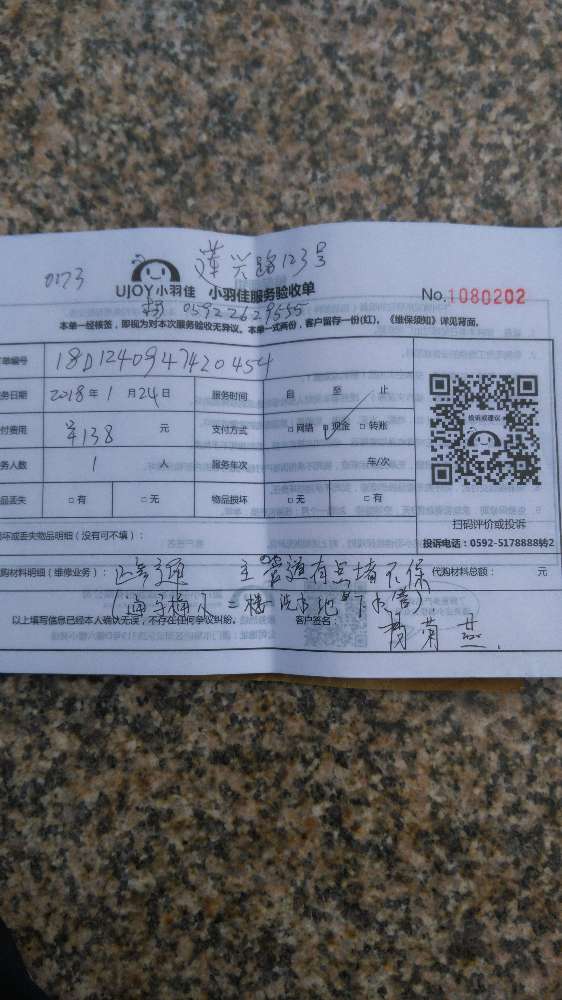 莲兴路123号
0173
UJOY小羽佳 小羽佳服务验收单
No.1080202
杨 05922629555
本单一经核签，即视为对本次服务验收无异议。本单一式两份，客户留存一份(红)。《维保须知》详见背面。
单编号 18D1240947420454
务日期 2018年1月24日 服务时间 自 至 止
付费用 ¥138 元 支付方式 □网络 ☑现金 □转账
务人数 1 人 服务车次 车/次
品丢失 □有 □无 物品损坏 □无 □有
投诉或建议
扫码评价或投诉
投诉电话：0592-5178888转2
坏或丢失物品明细（没有可不填）：
购材料明细（维修业务）： 已疏通 主管道有点堵不保 代购材料总额： 元
二楼洗 地下水管）
以上填写信息已经本人确认无误，不存在任何争议纠纷。 客户签名： 杨菊燕